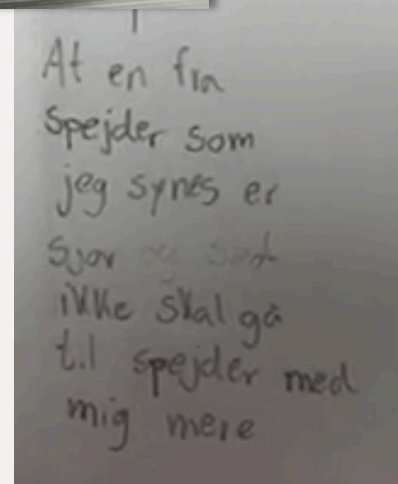 At en fra
spejder som
jeg synes er
sjov og sød
ikke skal gå
til spejder med
mig mere